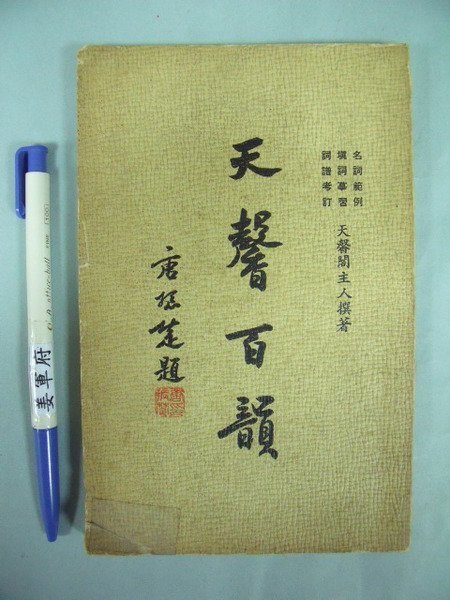 名詞範例
填詞摹習
詞譜考訂
天馨閣主人撰著
天馨百韻
唐振楚題
姜軍府
office ball